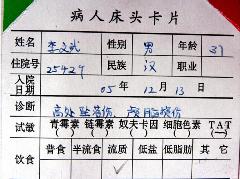 病人床头卡片
姓名 李文武 性别 男 年龄 37
住院号 25427 民族 汉 职业
入院日期 05年 12月 13日
诊断 高处坠落伤
试敏 青霉素 链霉素 奴夫卡因 细胞色素 TAT
( ) ( ) ( ) ( ) ( )
饮食 普食 半流食 流质 低盐 低脂肪 其它